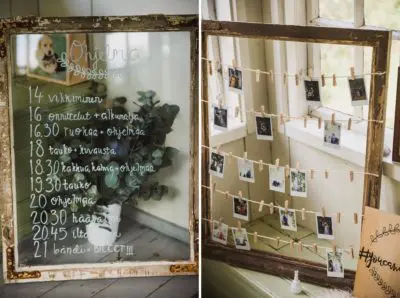 Ohjelma
14 vihkiminen
16 onnittelut + alkumalja
16.30 ruokaa + ohjelmaa
18 tauko + kuvausta
18.30 kakkua, kahvia + ohjelmaa
19.30 tauko
20 ohjelmaa
20.30 häävalssi
20.45
21 bändi + BILEET !!!